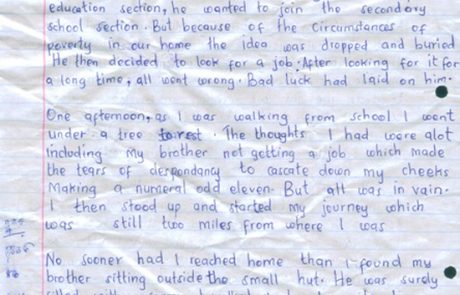 education section, he wanted to join the secondary
school section. But because of the circumstances of
poverty in our home the idea was dropped and buried
He then decided to look for a job. After looking for it for
a long time, all went wrong. Bad luck had laid on him.
One afternoon, as I was walking from school I went
under a tree to rest. The thoughts I had were alot
including my brother not getting a job which made
the tears of despondancy to cascate down my cheeks
Making a numeral odd eleven. But all was in vain.
I then stood up and started my journey which
was still two miles from where I was
No sooner had I reached home than I found my
brother sitting outside the small hut. He was surely